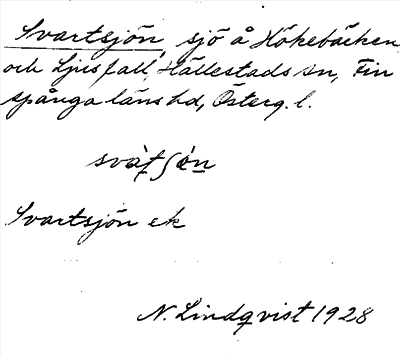 Svartsjön, sjö å Hökebäcken
och Ljusfall, Hällestads sn, Fin
spånga läns hd, Österg. l.
Svartsjön ek
N. Lindqvist 1928